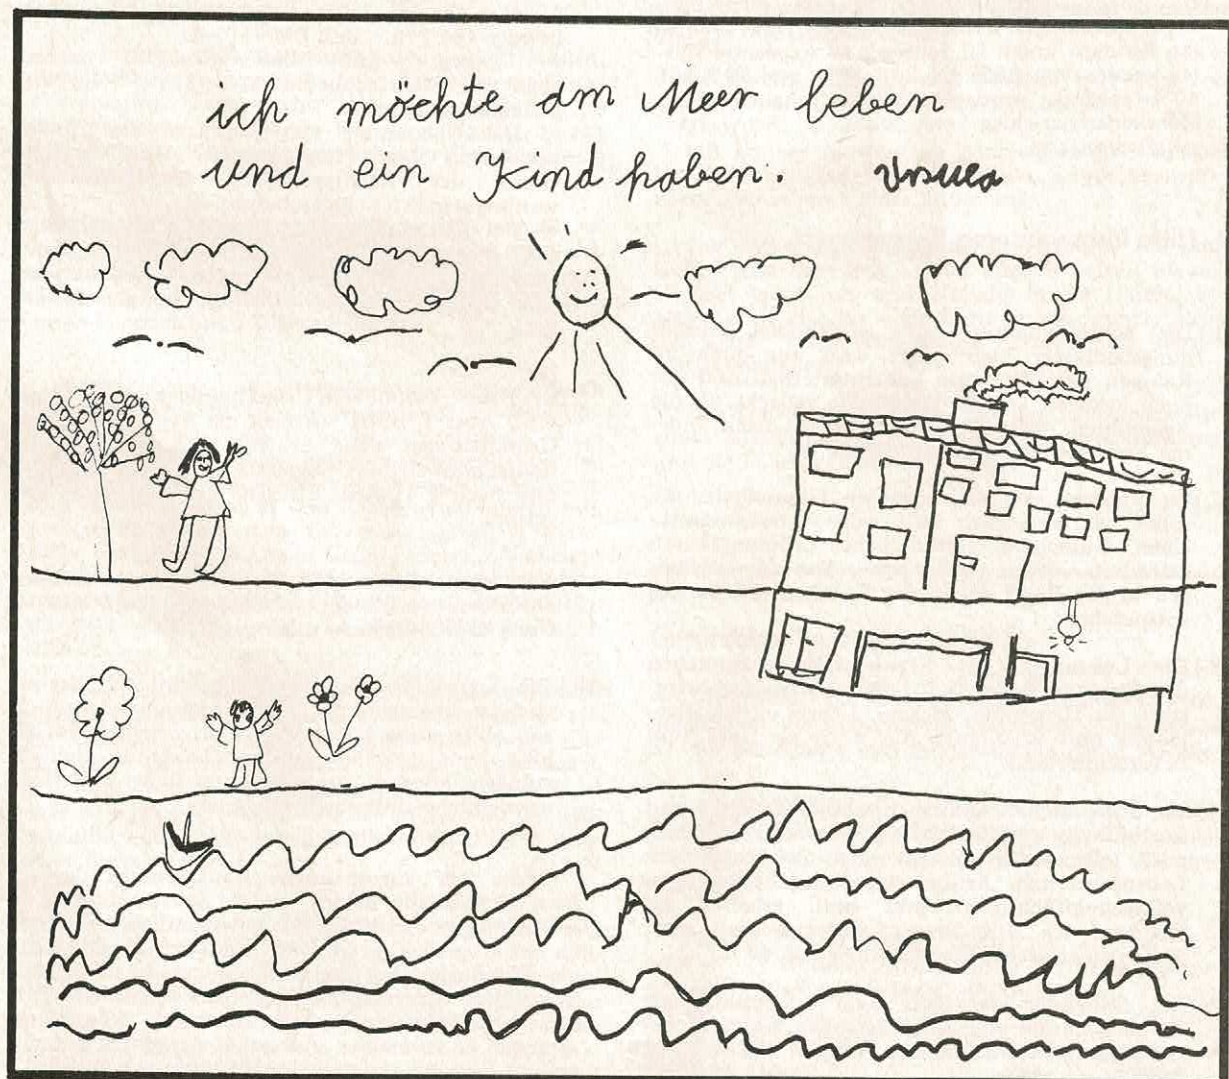 ich möchte am Meer leben
und ein Kind haben. Ursula